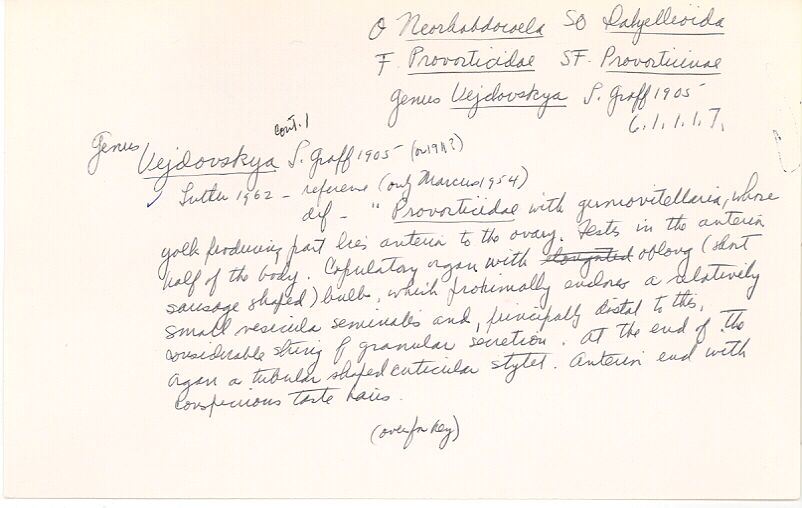 O Neorhabdocoela SO Dalyellioida
F. Provorticidae SF. Provorticinae
genus Vejdovskya S. Graff 1905
6.1.1.1.7.
cont.1
Genus Vejdovskya S. Graff 1905 (or 1911?)
Luther 1962 - referene (only Marcus 1954)
def - " Provorticidae with germovitellaria, whose
yolk producing part lies anterior to the ovary. Testes in the anterior
half of the body. Copulatory organ with elongated oblong (short
sausage shaped) bulb, which proximally encloses a relatively
small vesicula seminalis and, principally distal to this,
considerable string of granular secretion. At the end of the
organ a tubular shaped cuticular stylet. Anterior end with
conspicuous taste hairs.
(over for key)